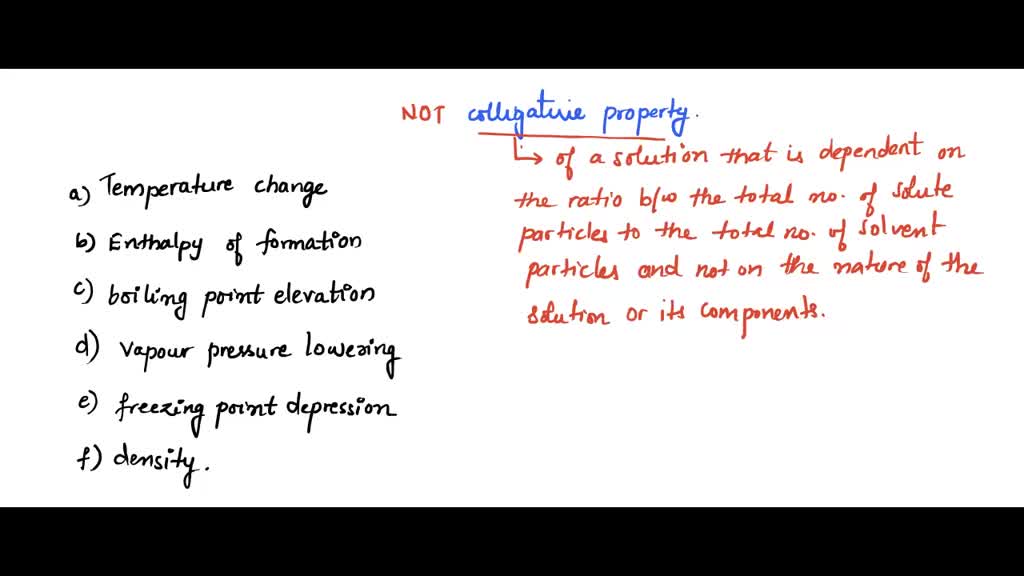 NOT colligative property.
↳ of a solution that is dependent on
the ratio b/w the total no. of solute
particles to the total no. of solvent
particles and not on the nature of the
solution or its components.
a) Temperature change
b) Enthalpy of formation
c) boiling point elevation
d) vapour pressure lowering
e) freezing point depression
f) density.